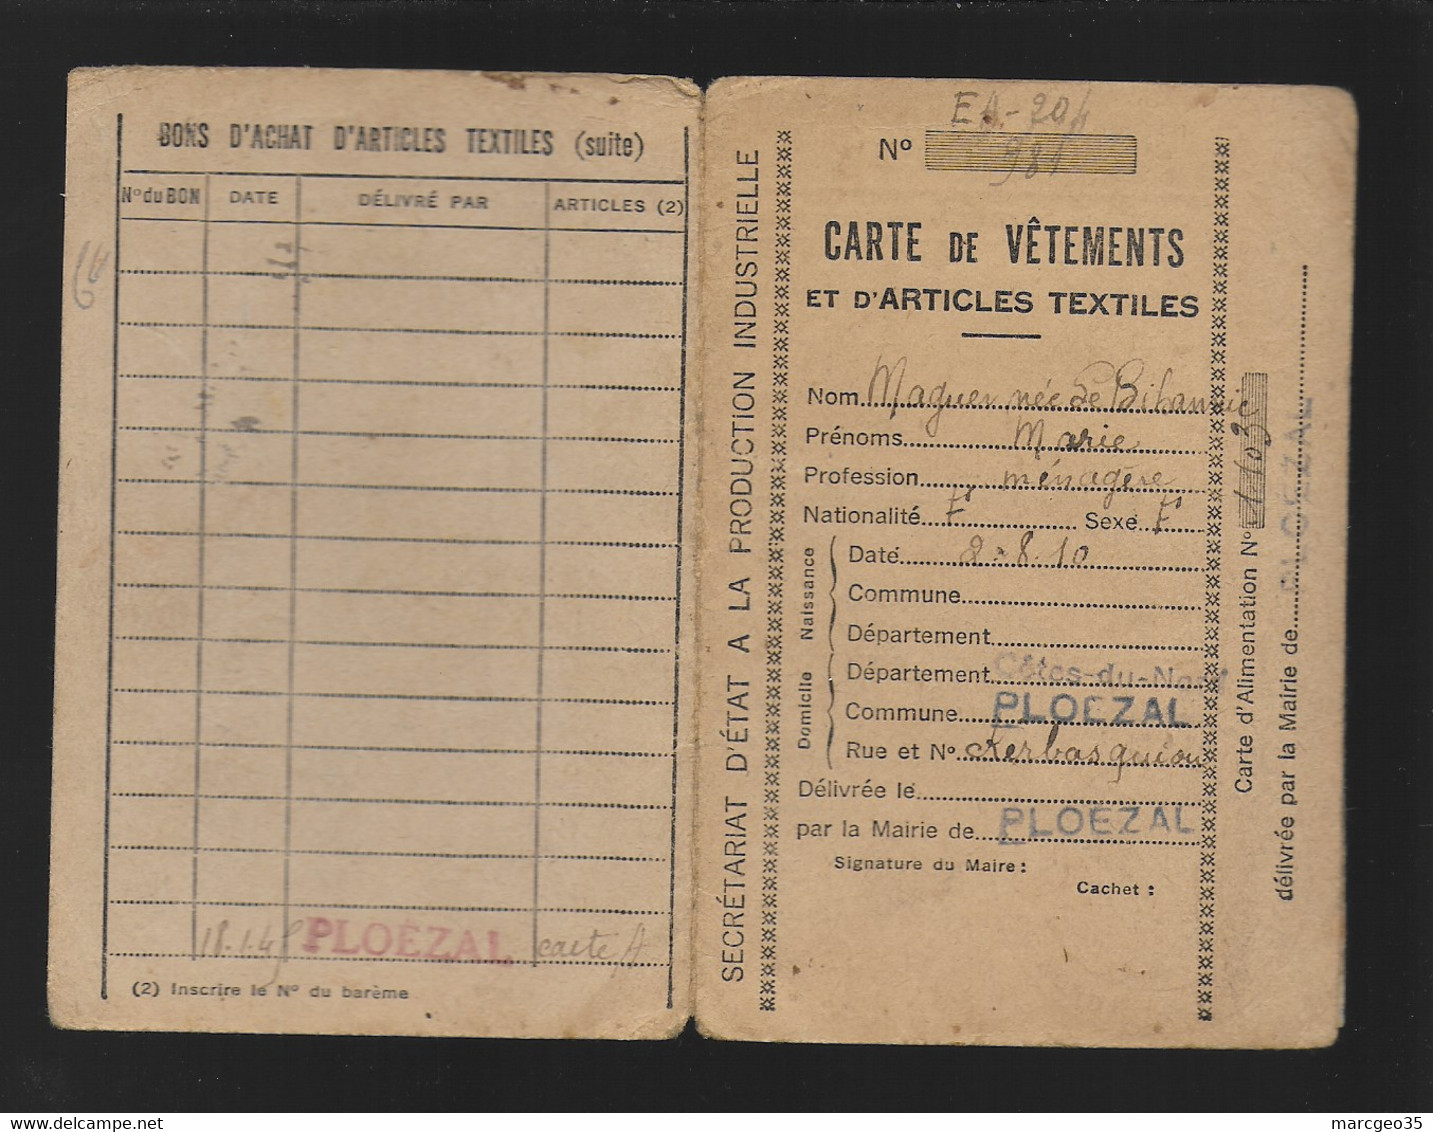 BONS D'ACHAT D'ARTICLES TEXTILES (suite)
N° du BON DATE DÉLIVRÉ PAR ARTICLES (2)
64
18.1.48 PLOËZAL carte A
(2) Inscrire le N° du barème
SECRÉTARIAT D'ÉTAT A LA PRODUCTION INDUSTRIELLE
EA-204
N° 981
CARTE DE VÊTEMENTS
ET D'ARTICLES TEXTILES
Nom Maguer née Le Bihannic
Prénoms Marie
Profession ménagère
Nationalité F Sexe F
Naissance
Date 2.8.10
Commune
Département
Domicile
Département Côtes-du-Nord
Commune PLOËZAL
Rue et N° Kerbasquiou
Délivrée le
par la Mairie de PLOËZAL
Signature du Maire :
Cachet :
Carte d'Alimentation N° 1103
délivrée par la Mairie de PLOËZAL
marcgeo35